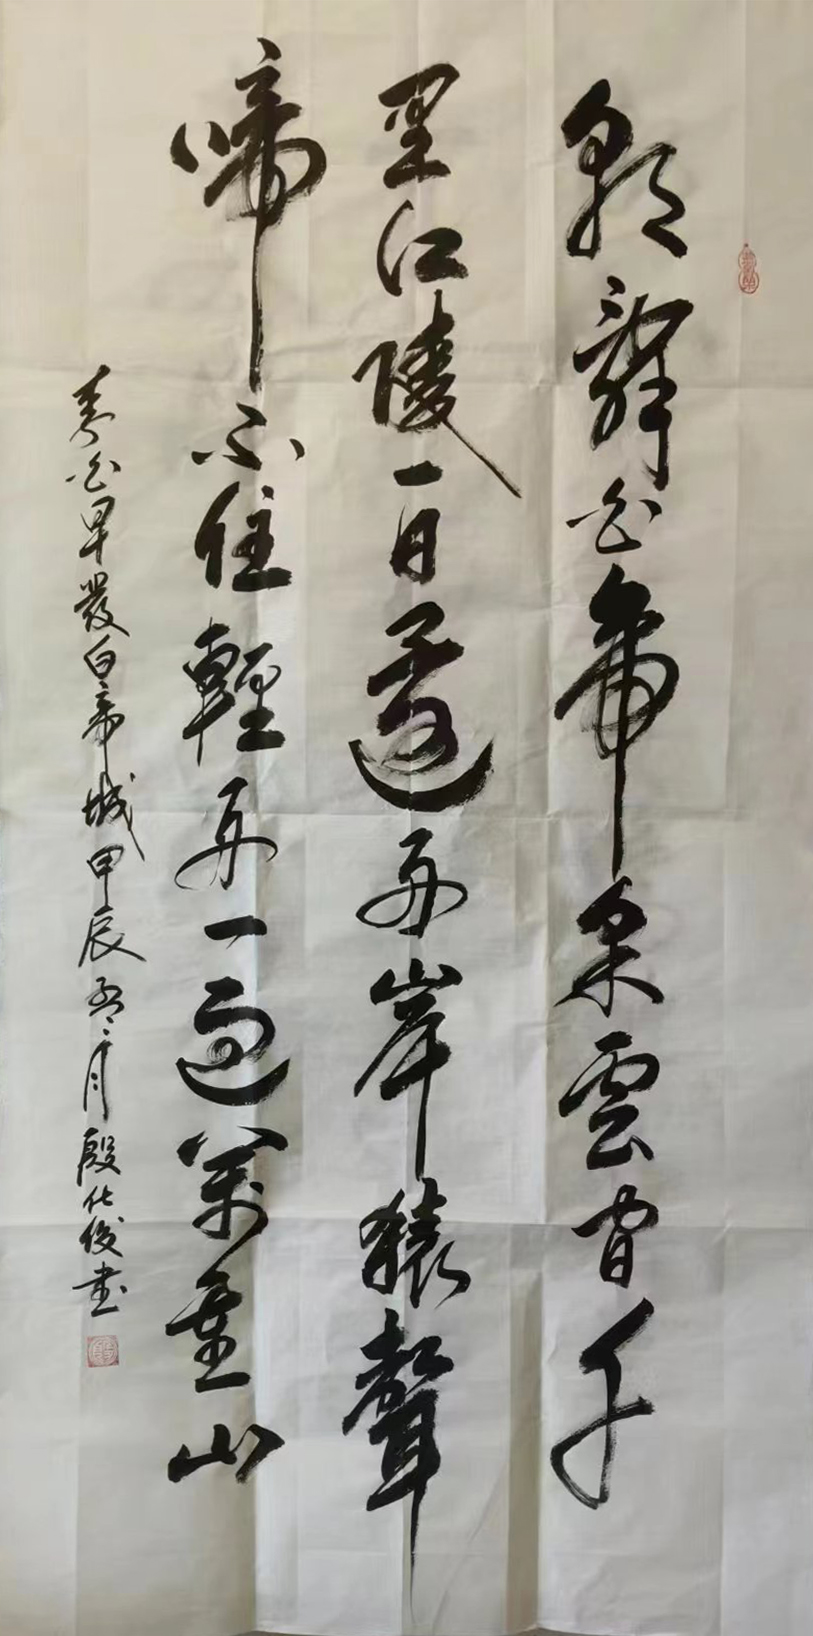 朝辭白帝采雲间千
里江陵一日還两岸猿聲
啼不住輕舟一過萬重山
李白早發白帝城甲辰月殷化俊書